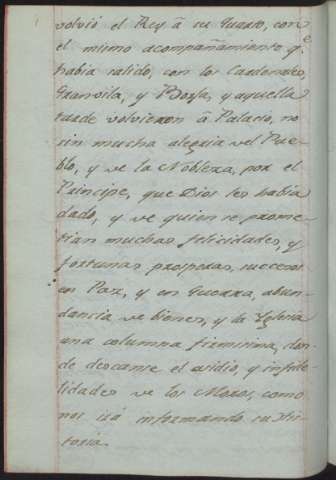 volvió el Rey â su Quarto, con
el mismo acompañamiento q.e
habia salido, con los Cardenales,
Granvila, y Borja, y aquella
tarde volvieron â Palacio, no
sin mucha alegria del Pue-
blo, y de la Nobleza, por el
Principe, que Dios les habia
dado, y de quien se prome-
tian muchas felicidades, y
fortunas prosperas, sucesos
en Paz, y en Guerra, abun-
dancia de bienes, y la Yglesia
una columna firmisima, don-
de descanse el asidio, y infide-
lidades de los Moros, como
nos irá informando su His-
toria.